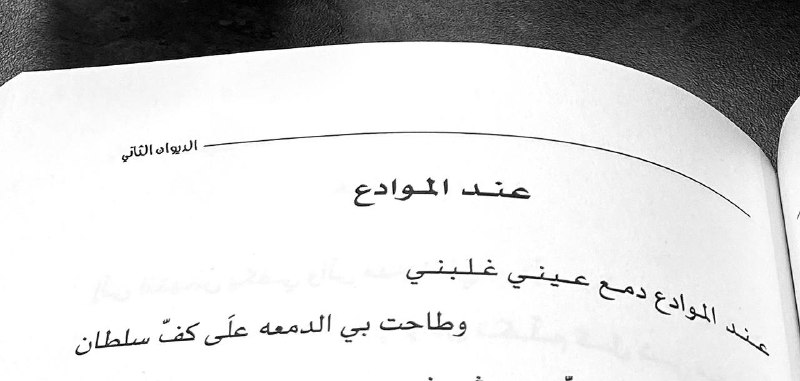 الديوان الثاني
عند الموادع
عند الموادع دمع عيني غلبني
وطاحت بي الدمعه علَى كفّ سلطان